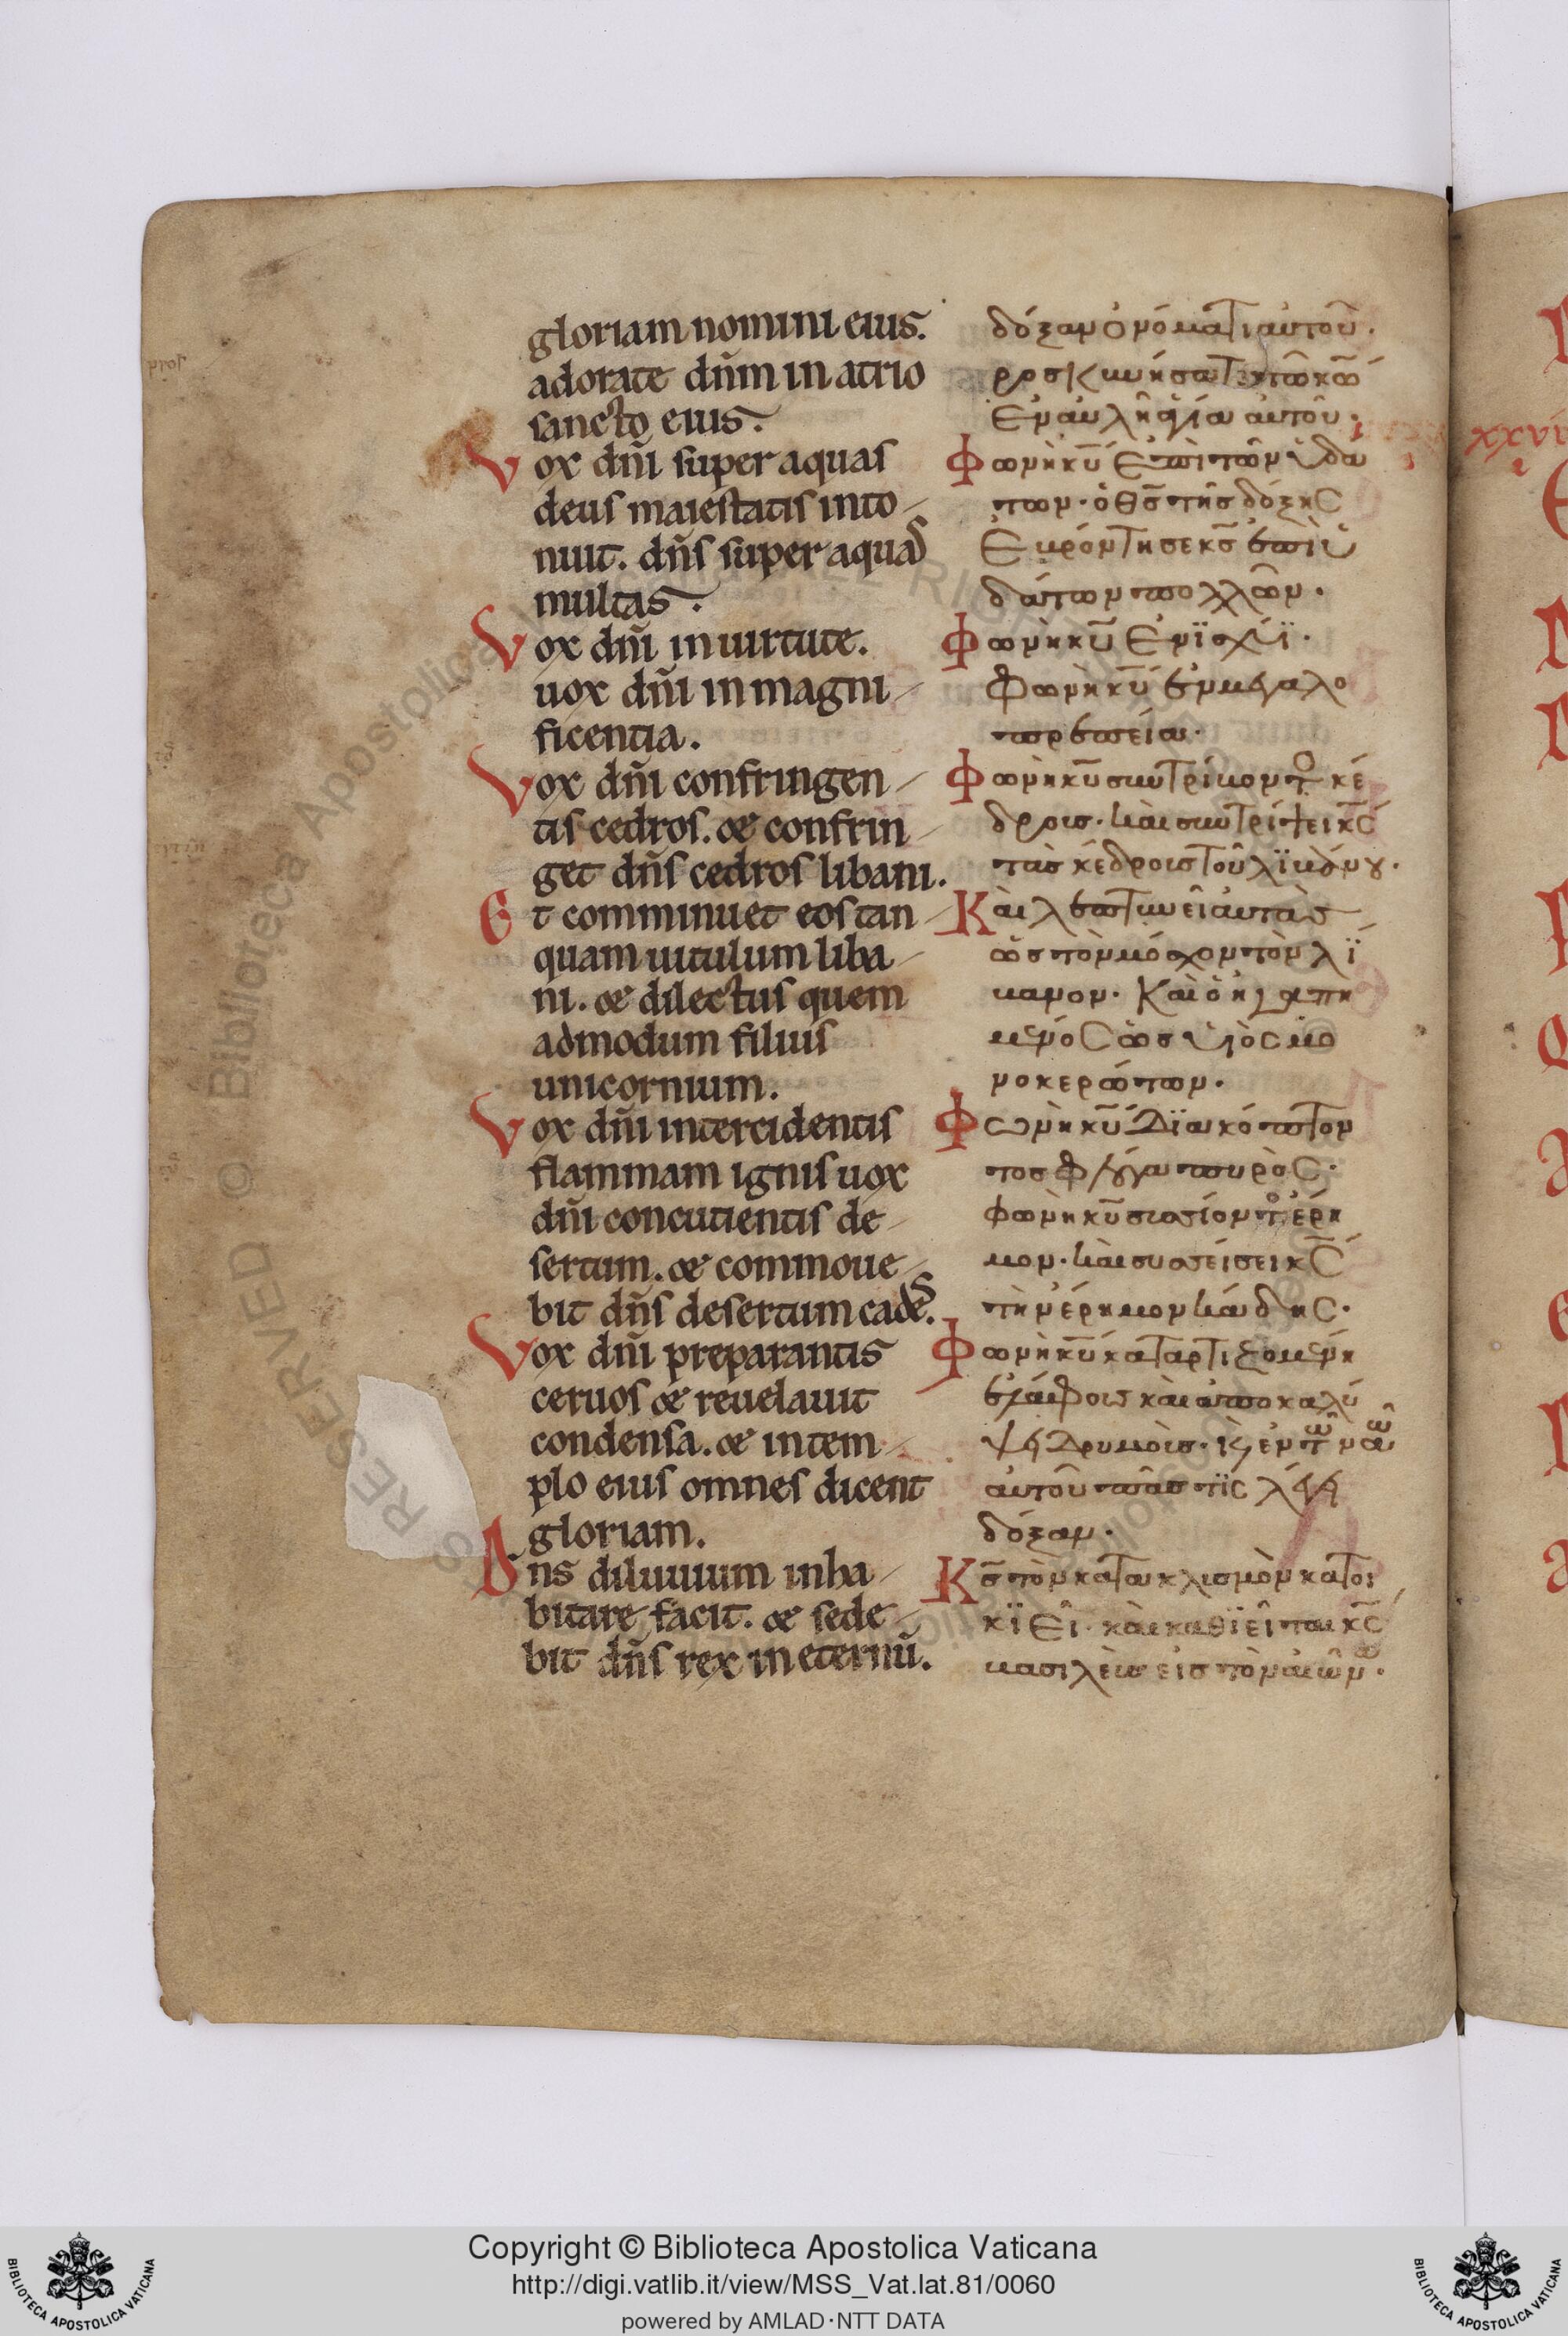 gloriam nomini eius.
adorate dn̄m in atrio
sancto eius.
Vox dn̄i super aquas
deus maiestatis into-
nuit. dn̄s super aquas
multas.
Vox dn̄i in uirtute.
uox dn̄i in magni-
ficentia.
Vox dn̄i confringen-
tis cedros. & confrin-
get dn̄s cedros libani.
Et comminuet eos tan-
quam uitulum liba-
ni. & dilectus quem
admodum filius
unicornium.
Vox dn̄i intercidentis
flammam ignis uox
dn̄i concutientis de-
sertum. & commoue-
bit dn̄s desertum cades.
Vox dn̄i preparantis
ceruos & reuelauit
condensa. & in tem-
plo eius omnes dicent
gloriam.
Dns diluuium inha-
bitare facit. & sede-
bit dn̄s rex in eternū.
δόξαν ὀνόματι αὐτοῦ.
προσκυνήσατε τῶ κ̄ω
ἐν αὐλῆ ἁγία αὐτοῦ.
Φωνὴ κ̄υ ἐπὶ τῶν ὑδά
των. ὁ θ̄σ τῆσ δόξησ
ἐβρόντησε κ̄σ ἐπὶ ὑ
δάτων πολλῶν.
Φωνὴ κ̄υ ἐν ϊσχύϊ.
Φωνὴ κ̄υ ἐν μεγαλο
πρεπεία.
Φωνὴ κ̄υ συντρίβοντο κέ
δροισ. καὶ συντρίψει κ̄σ
τὰσ κέδροισ τοῦ λϊβάνου.
Καὶ λεπτυνεῖ αὐτὰσ
ὡσ τὸν μόσχον τὸν λϊ
βανον. Καὶ ὁ ἠγαπη
μένοσ ὡσ υἱὸσ μο
νοκερώτων.
Φωνὴ κ̄υ Δϊακόπτον
τοσ φλόγα πυρὸσ.
φωνὴ κ̄υ συσίοντο ἔρη
μον. καὶ συσείσει κ̄σ
τὴν ἔρημον κάδησ.
Φωνὴ κ̄υ καταρτιζομένη
ἐλάφοισ καὶ ἀποκαλύ
ψει Δρυμοὶσ. κ̀ ἐν τῶ ναῶ
αὐτοῦ πᾶσ τϊσ λέγει
δόξαν.
Κ̄σ τὸν κατακλισμὸν κατοι
κϊεῖ. καὶ καθϊεῖται κ̄σ
βασιλὲυσ εἰσ τὸν αἰῶν.
Copyright © Biblioteca Apostolica Vaticana
http://digi.vatlib.it/view/MSS_Vat.lat.81/0060
powered by AMLAD·NTT DATA